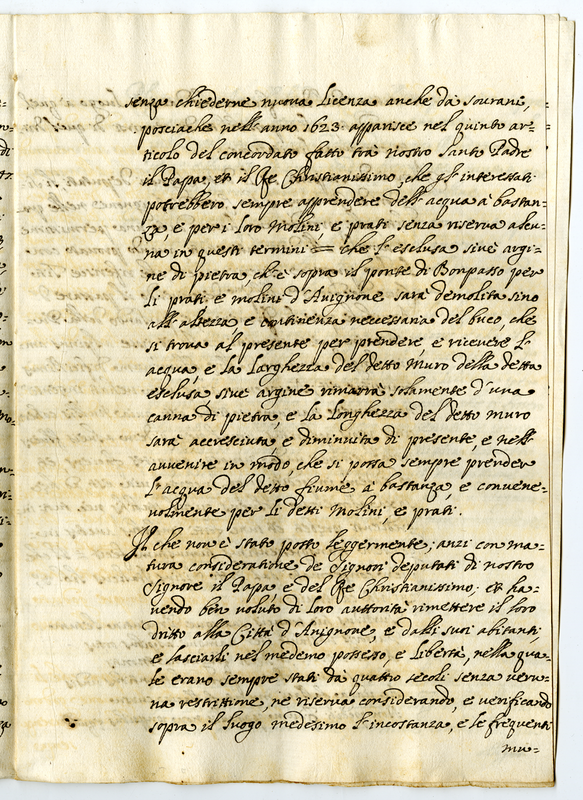 senza chiederne nuova licenza anche da sourani,
posciache nell'anno 1623. apparisce nel quinto ar=
ticolo del concordato fatto trà nostro santo Padre
il Papa, et il Rè Christianissimo, che gl'interessati
potrebbero sempre apprendere dell'acqua à bastan=
za, e per i loro Molini, e prati senza riserva alcu=
na in questi termini = che l'esclusa sive argi=
ne di pietra, ch'è sopra il ponte di Bonpasso per
li prati, e molini d'Avignone sarà demolita sino
all'altezza, e continenza necessaria del buco, che
si trova al presente per prendere, e ricevere l'
acqua, e la larghezza del detto muro della detta
esclusa sive argine rimarrà solamente d'una
canna di pietra, e la longhezza del detto muro
sarà accresciuta e diminuita di presente, e nell'
auvenire in modo, che si possa sempre prender
l'acqua del detto fiume à bastanza, e convene=
volmente per li detti Molini, e prati.
Il che non è stato posto leggermente; anzi con ma=
tura consideratione de Signori deputati di nostro
Signore il Papa, e del Rè Christianissimo; et ha=
vendo ben voluto di loro auttorità rimettere il loro
dritto alla Città d'Avignone, e dalli suoi abitanti,
e lasciarli nel medemo possesso, e libertà, nella qua=
le erano sempre stati da quattro secoli senza veru=
na restrittione, ne riserva considerando, e verificando
sopra il luogo medesimo l'incostanza, e le frequenti
mu=